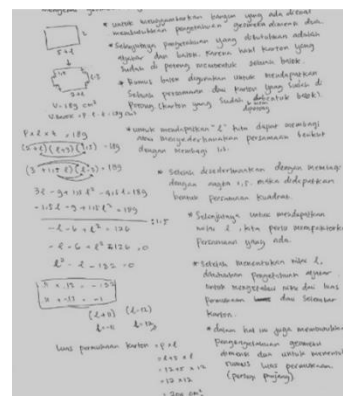 * untuk menggambarkan bangun yang ada di soal
membutuhkan pengetahuan geometri dimensi dua.
* Selanjutnya pengetahuan yang dibutuhkan adalah
aljabar dan balok. Karena hasil karton yang
sudah di potong membentuk sebuah balok.
* Rumus balok digunakan untuk mendapatkan
Sebuah persamaan dari karton yang sudah di
potong (karton yang sudah dibentuk balok).
V = 189 cm³
P x l x t = 189
* untuk mendapatkan "l" kita dapat membagi
atau menyederhanakan persamaan berikut
dengan membagi 1,5.
3l - 9 + 1,5 l² - 4,5 l = 189
-1,5 l - 9 + 1,5 l² = 189
: 1,5
-l - 6 + l² = 126
-l - 6 + l² - 126 = 0
l² - l - 132 = 0
* Setelah disederhanakan dengan membagi
dengan angka 1,5. maka didapatkan
bentuk persamaan kuadrat.
* Selanjutnya untuk mendapatkan
nilai l, kita perlu memfaktorkan
persamaan yang ada.
(l+11) (l-12)
* Setelah menentukan nilai l,
dibutuhkan pengetahuan aljabar
untuk mengetahui nilai dari luas
permukaan dari selembar
karton.
luas permukaan karton = p x l
= l+5 x l
= 12+5 x 12
= 17 x 12
= 204 cm²
* dalam hal ini juga membutuhkan
pengetahuan geometri
dimensi dua untuk menentukan
rumus luas permukaan
(persegi panjang)